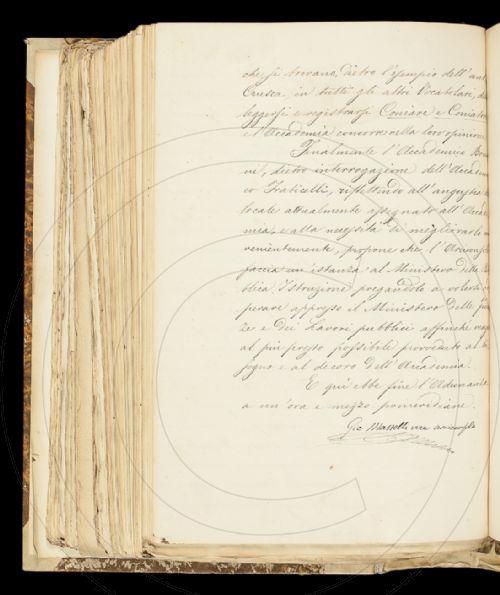 che si trovano, dietro l'esempio dell'ant
Crusca, in tutti gli altri Vocabolari, d
leggersi e registrarsi Coniare e Coniator
e l'Accademia concorre nella loro opinione
Finalmente l'Accademico Bon
ni, dietro interrogazione dell'Accadem
co Fraticelli, riflettendo all'angustia
locale attualmente assegnato all'Acca
mia, e alla necessità di migliorarlo
venientemente, propone che l'Arciconsolo
faccia un'istanza al Ministero della
blica Istruzione pregandolo a volersi
perare appresso il Ministero delle Fin
ze e dei Lavori pubblici affinché
al più presto possibile provveduto al
sogno e al decoro dell'Accademia.
E qui ebbe fine l'Adunanza
a un'ora e mezzo pomeridiane.
Gio. Masselli